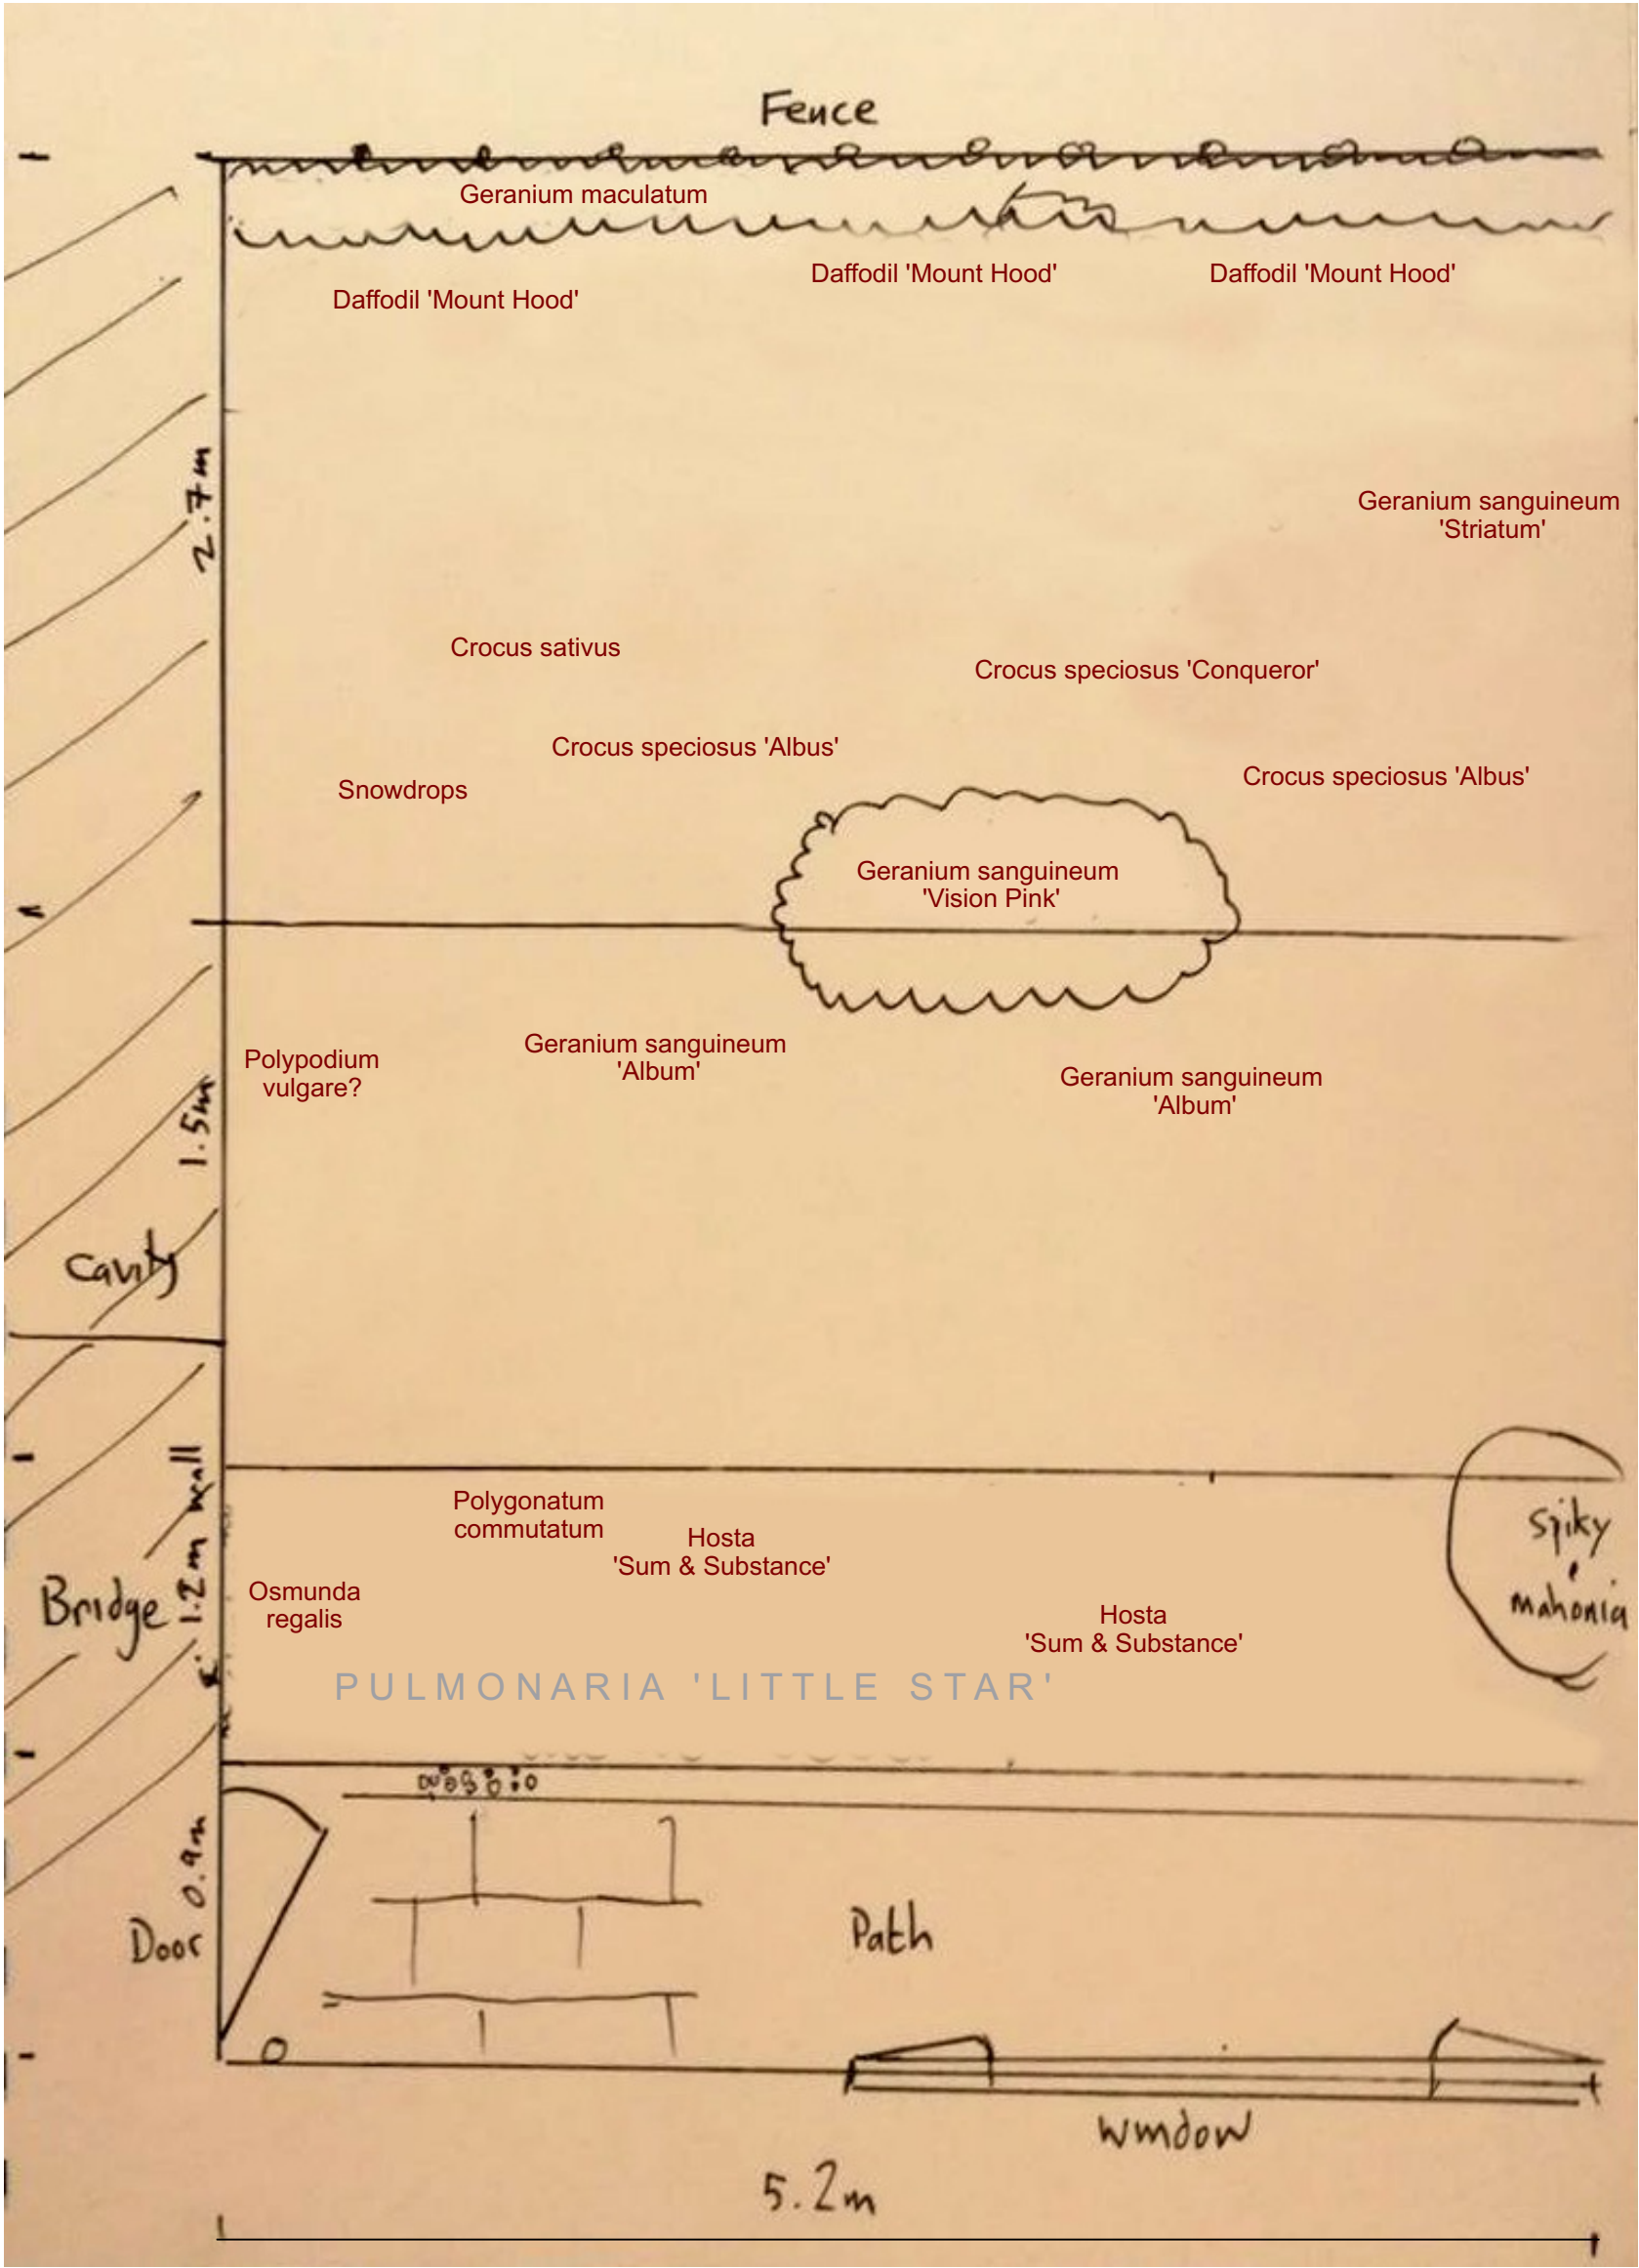 Fence
Geranium maculatum
Daffodil 'Mount Hood'
Daffodil 'Mount Hood'
Daffodil 'Mount Hood'
2.7m
Geranium sanguineum
'Striatum'
Crocus sativus
Crocus speciosus 'Conqueror'
Crocus speciosus 'Albus'
Crocus speciosus 'Albus'
Snowdrops
Geranium sanguineum
'Vision Pink'
Polypodium
vulgare?
Geranium sanguineum
'Album'
Geranium sanguineum
'Album'
1.5m
Cavity
1.2m wall
Polygonatum
commutatum
Hosta
'Sum & Substance'
Spiky
mahonia
Bridge
Osmunda
regalis
Hosta
'Sum & Substance'
PULMONARIA 'LITTLE STAR'
0.9m
Door
Path
Window
5.2m